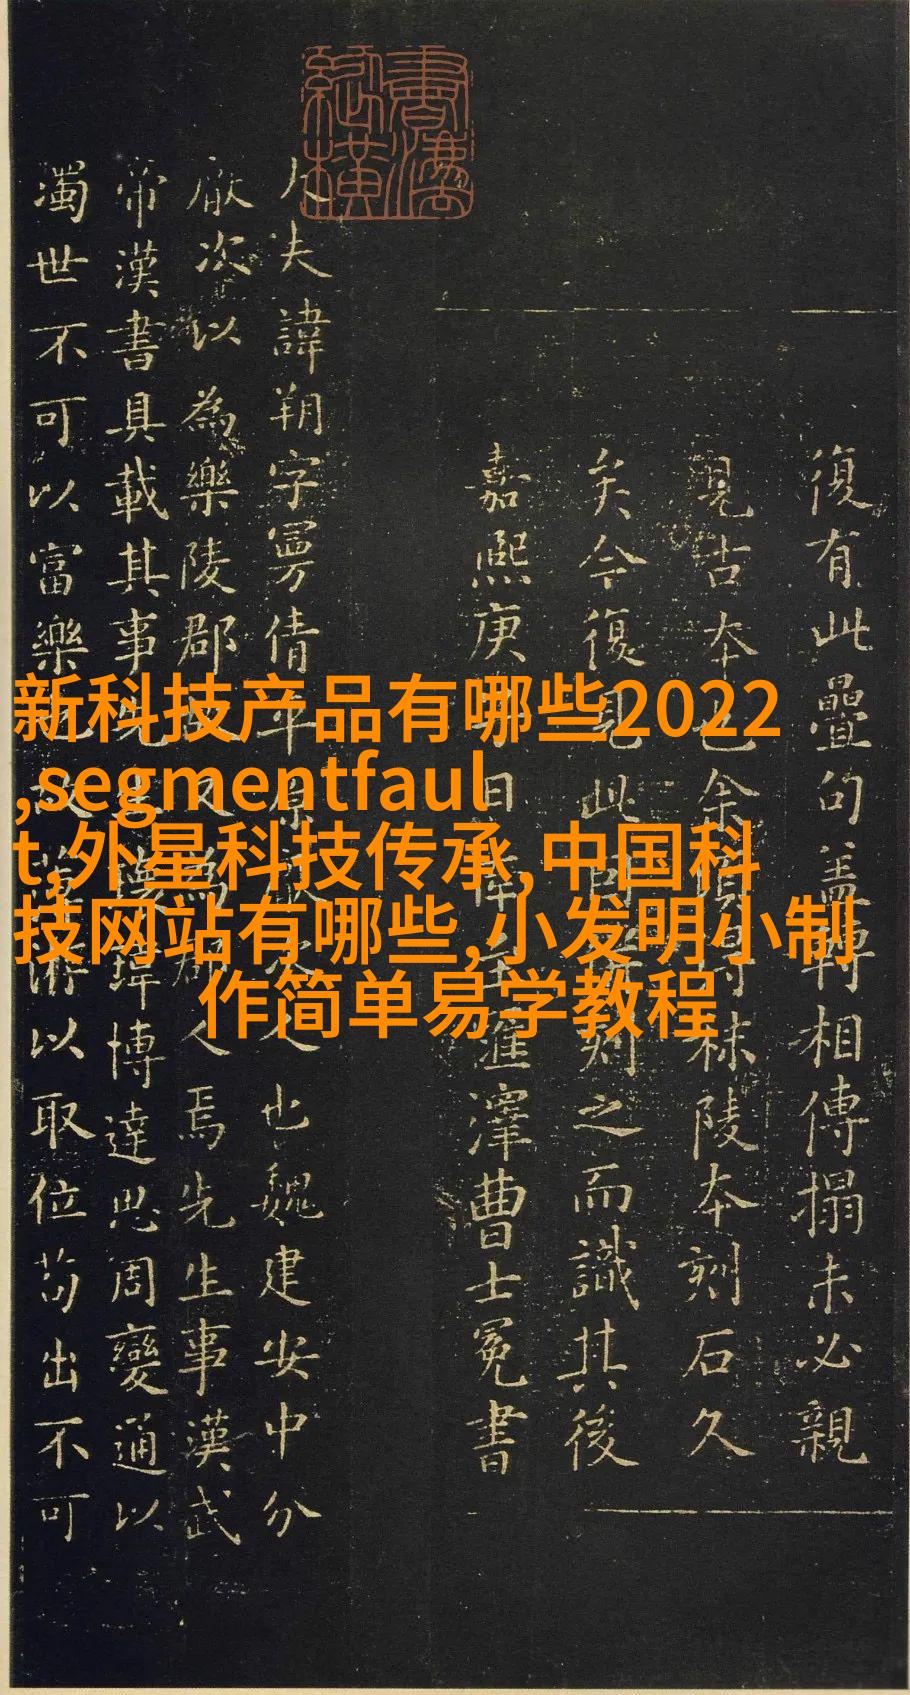 復有此疊句蓋轉相傳搨未必親
見古本也余得秣陵本刻石久
矣今復見此刻之而識其後
嘉熙庚滙澤曹士冕書
大夫諱朔字曼倩平原厭次人也魏建安中分
厭次以為樂陵郡又為郡人焉先生事漢武
帝漢書具載其事先生瓌瑋博達思周變通以
濁世不可以富樂也故薄游以取位苟出不可
新科技产品有哪些2022
,segmentfaul
t,外星科技传承,中国科
技网站有哪些,小发明小制
作简单易学教程